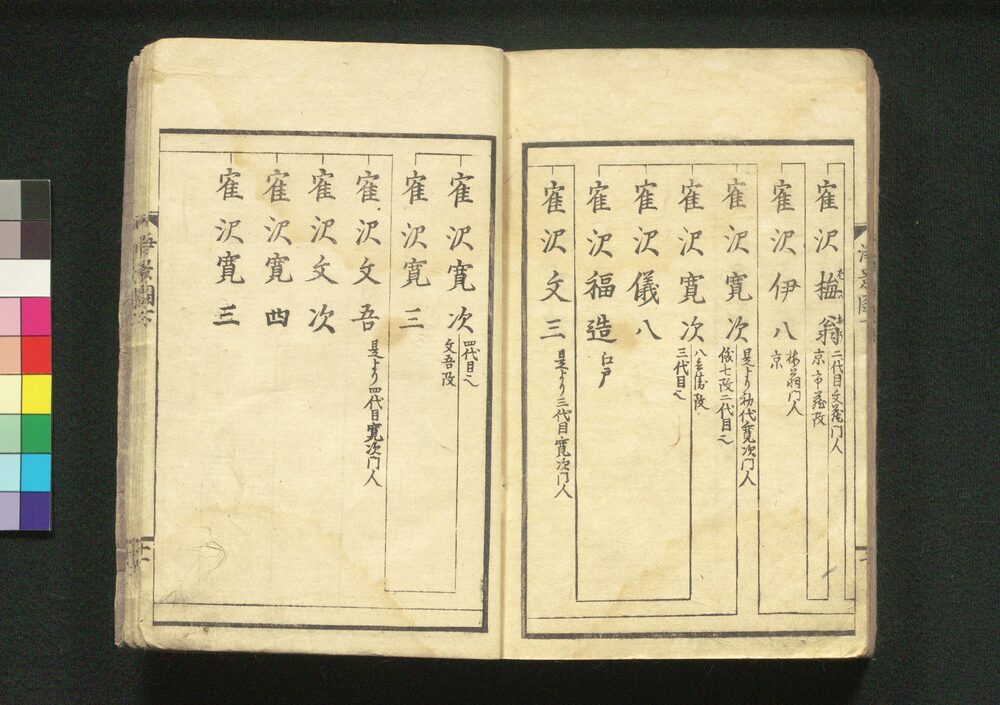 寉沢梅翁
二代目文蔵門人
京市蔵改
寉沢伊八
梅翁門人
京
寉沢寛次
是より初代寛次門人
儀七改二代目也
寉沢寛次
三代目也
寉沢儀八
寉沢福造
江戸
寉沢文三
是より三代目寛次門人
寉沢寛次
四代目也
文吾改
寉沢寛三
寉沢文吾
是より四代目寛次門人
寉沢文次
寉沢寛四
寉沢寛三